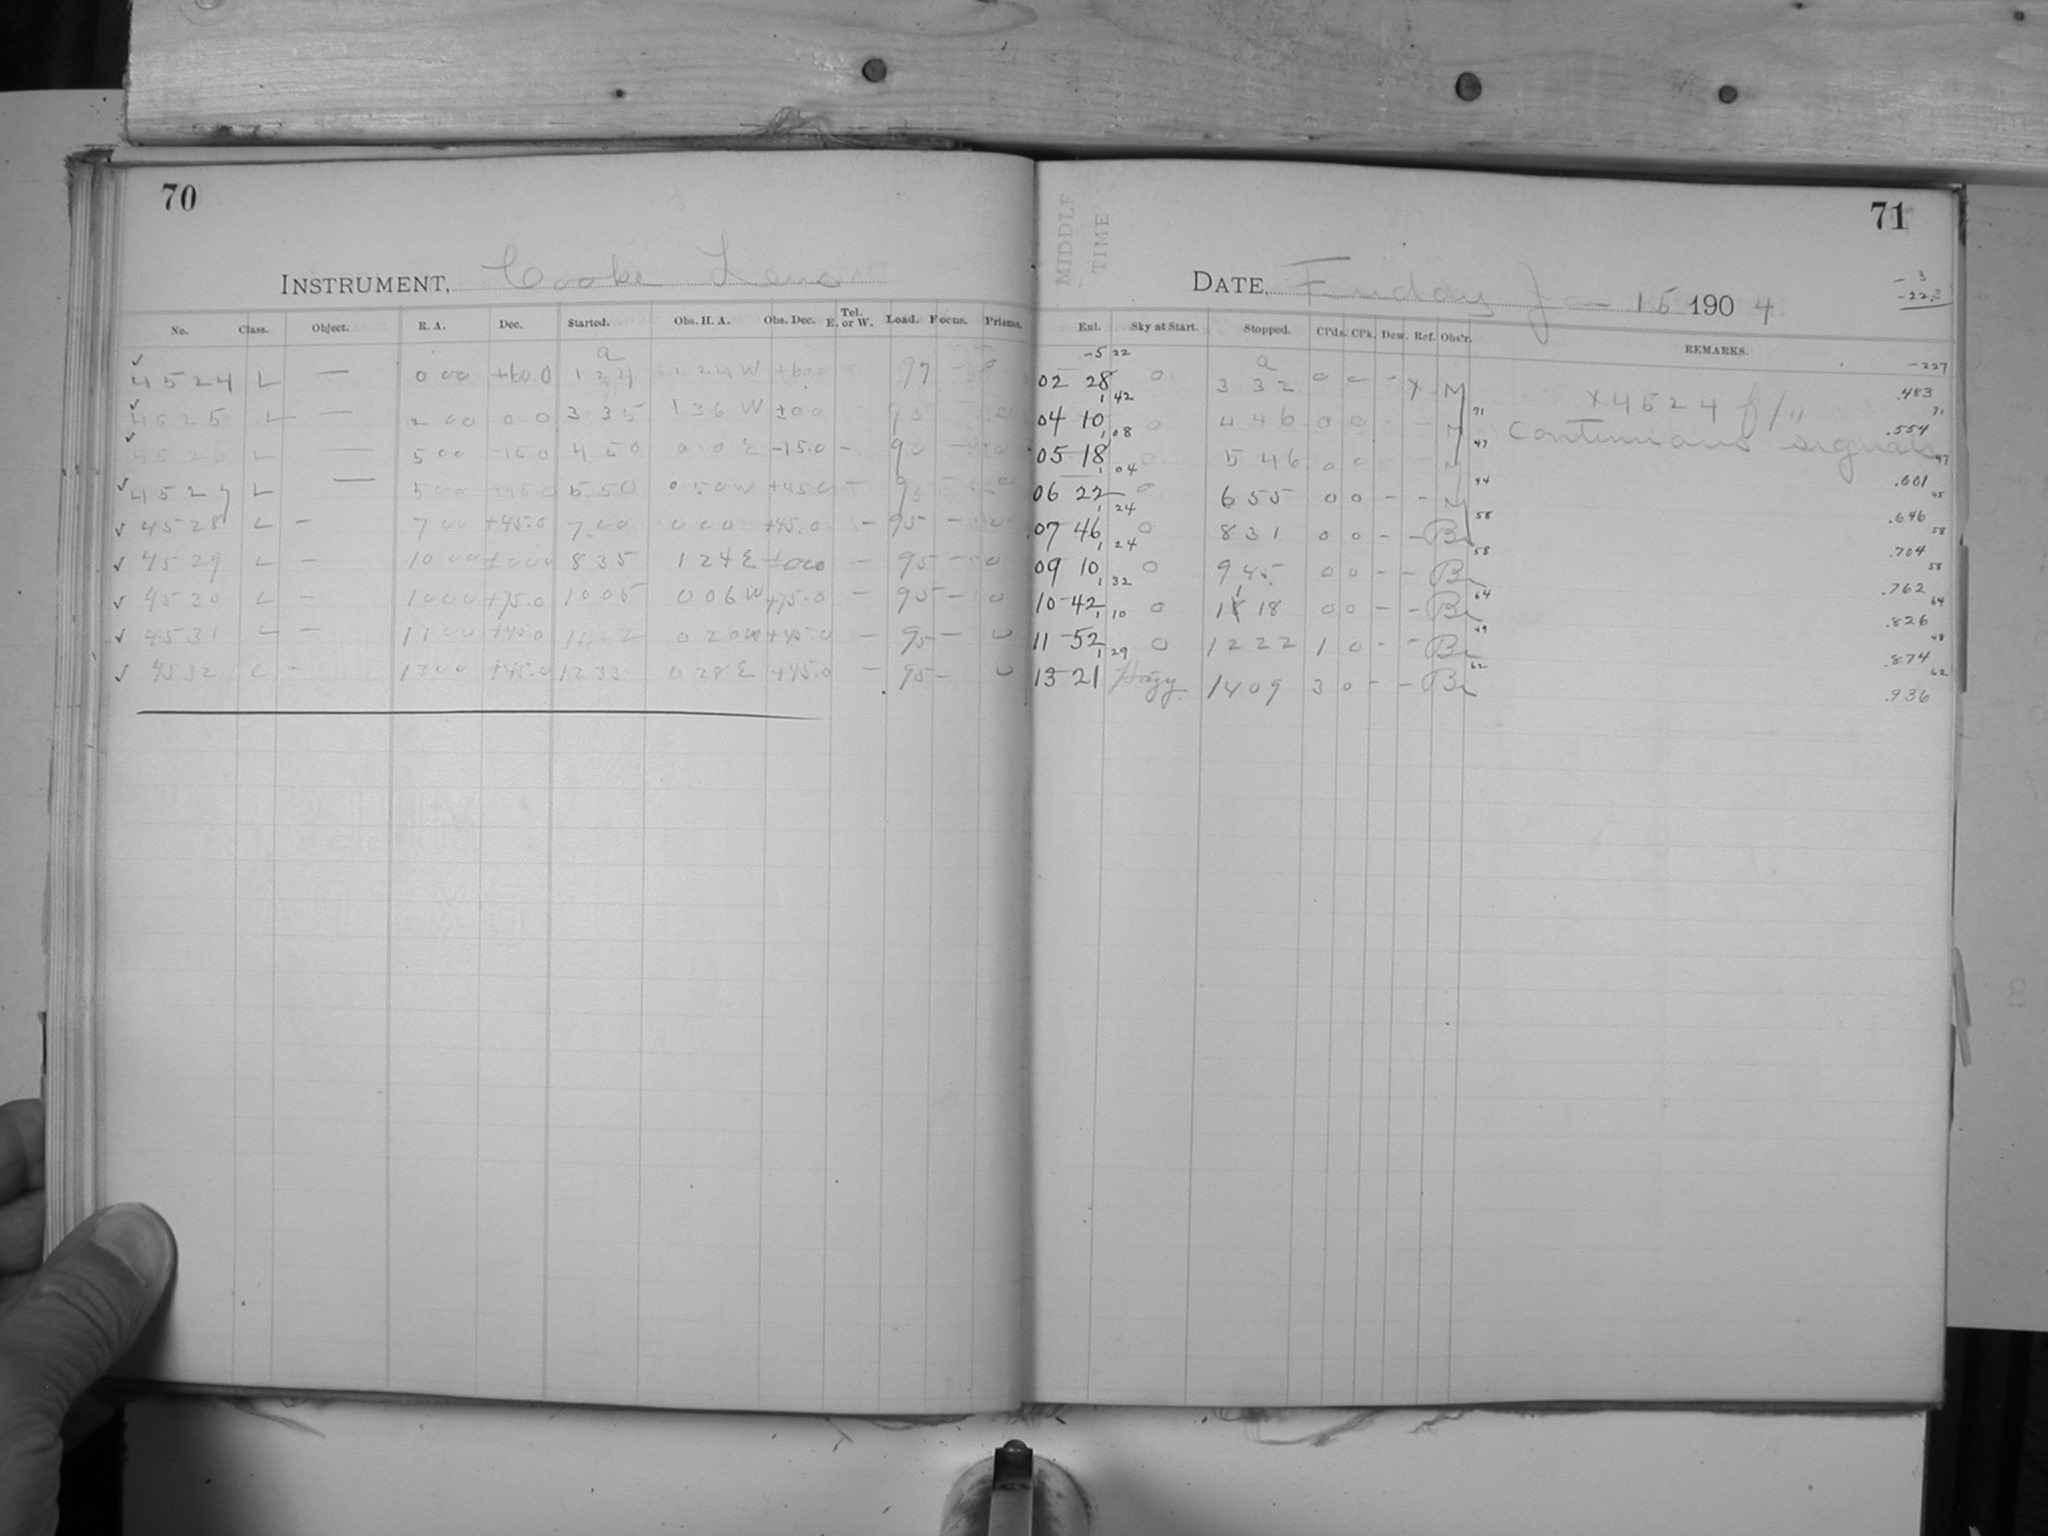 70
INSTRUMENT, Cooke Lens
No. Class. Object. R. A. Dec. Started. Obs. H. A. Obs. Dec. Tel. E. or W. Load. Focus. Prisms.
a
4524 L — 0 00 +60.0 1 24 1 24 W +60.0 97 - 0
4525 L — 2 00 0.0 3 35 1 36 W ±0.0 95 0
4526 L — 5 00 -15.0 4 50 0 10 E -15.0 - 90 - 0
4527 L — 5 00 +45.0 5 50 0 50 W +45.0 - 95 - 0
4528 L — 7 00 +45.0 7 00 0 00 +45.0 - 95 - 0
4529 L — 10 00 ±00.0 8 35 1 24 E ±00.0 - 95 - 0
4530 L — 10 00 +75.0 10 05 0 06 W +75.0 - 95 - 0
4531 L — 11 00 +45.0 11 22 0 20 W +45.0 - 95 - 0
4532 L — 13 00 +45.0 12 33 0 28 E +45.0 - 95 - 0
71
MIDDLE
TIME
DATE, Friday Jan 15 1904
-3
Enl. Sky at Start. Stopped. Cl'ds. Cl'k. Dew. Ref. Obs'r. REMARKS.
-5 22 a -227
02 28 0 3 32 0 0 - x M x 4524 f/" .483
1 42 71 71
04 10 0 4 46 0 0 - - M continuous signals .554
1 08 47 47
05 18 0 5 46 0 0 - - M .601
1 04 44 45
06 22 0 6 55 0 0 - - M .646
1 24 58 58
07 46 0 8 31 0 0 - - Br .704
1 24 58 58
09 10 0 9 45 0 0 - - Br .762
1 32 64 64
10 42 0 11 18 0 0 - - Br .826
1 10 49 48
11 52 0 12 22 1 0 - - Br .874
1 29 62 62
13 21 Hazy 14 09 3 0 - - Br .936